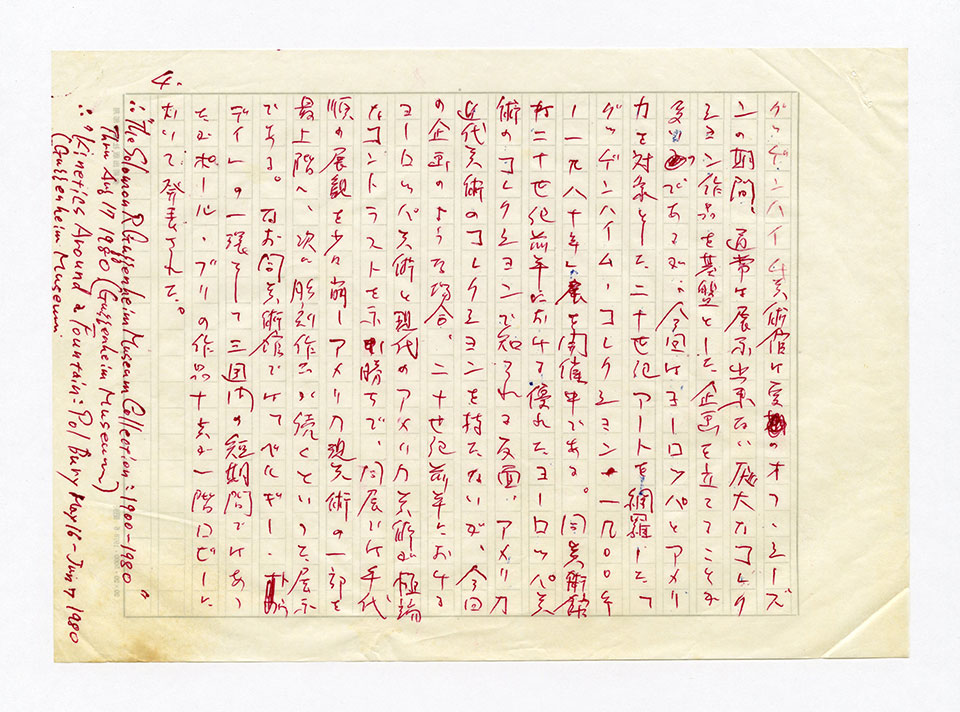 4.
グッゲンハイム美術館は夏のオフ・シーズ
ンの期間、通常は展示出来ない厖大なコレク
ション作品を基盤とした企画を立てることが
多いのであるが、今回はヨーロッパとアメリ
カを対象とした二十世紀アートを網羅したて
グッゲンハイム・コレクション・一九〇〇年
ー一九八十年」展を開催中である。同美術館
は二十世紀前半における優れたヨーロッパ美
術のコレクションで知られる反面、アメリカ
近代美術のコレクションを持たないが、今回
の企画のような場合、二十世紀前半における
ヨーロッパ美術と現代のアメリカ美術が極端
なコントラストを示し勝ちで、同展では年代
順の展観を少し崩しアメリカ現代美術の一部を
最上階へ、次に彫刻作品が続くといった展示
である。なお同美術館ではベルギー・
デイ」の一環として三週間の短期間ではあっ
たがポール・ブリの作品十点が一階ロビーに
おいて発表された。
∴"The Solomon R Guggenheim Museum Collection: 1900-1980"
Thru Aug 17 1980 (Guggenheim Museum)
∴"Kinetics Around a Fountain: Pol Bury May 16 - Jun 7 1980
(Guggenheim Museum)